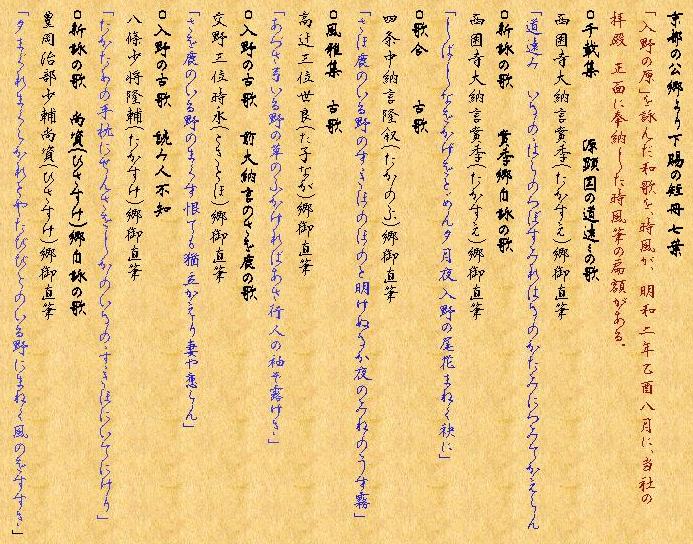 京都の公郷より下賜の短冊七葉
「入野の原」を詠んだ和歌を、時風が、明和二年乙酉八月に、当社の
拝殿 正面に奉納した時風筆の扁額がある。
□千載集 源顕国の道遠ミの歌
西園寺大納言賞季(たかすえ)郷御直筆
「道遠み いるのはらのつぼすみれはるのかたみにつみてかえらん
□新詠の歌 賞季郷自詠の歌
西園寺大納言賞季(たかすえ)郷御直筆
「しばしなをかけをとゞめん夕月夜入野の尾花まねく袂に」
□歌合 古歌
四条中納言隆叙(たかのぶ)郷御直筆
「さほ鹿のいる野のすすきほのほのと明けぬるか夜のみねのうす霧」
□風雅集 古歌
高辻三位世良(たゞなか)郷御直筆
「あつさ弓いる野の草のふかければあさ行人の袖そ露けき」
□入野の古歌 前大納言のさを鹿の歌
交野三位時永(ときとほ)郷御直筆
「さを鹿のいる野のまくす恨ても猶立かえり妻や恋らん」
□入野の古歌 読み人不知
八條少将隆輔(たかすけ)郷御直筆
「たかための手枕にせんさをしかのいるのゝすゝきほにいてにけり」
□新詠の歌 尚資(ひさすけ)郷自詠の歌
豊岡治部少輔尚資(ひさすけ)郷御直筆
「夕まぐれまくらかれとやたびびとのいる野にまねく風のをすすき」